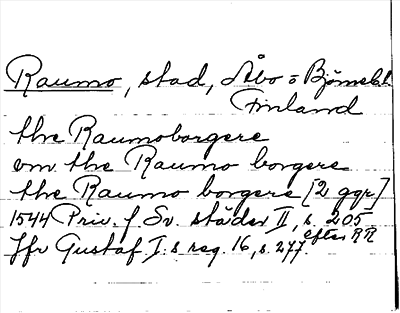 Raumo, stad, Åbo o Björnebl.
Finland
the Raumoborgere
om the Raumo borgere
the Raumo borgere [2 ggr]
1544 Priv. f Sv. städer II, s. 205
efter RR
Jfr Gustaf I:s reg. 16, s. 277.